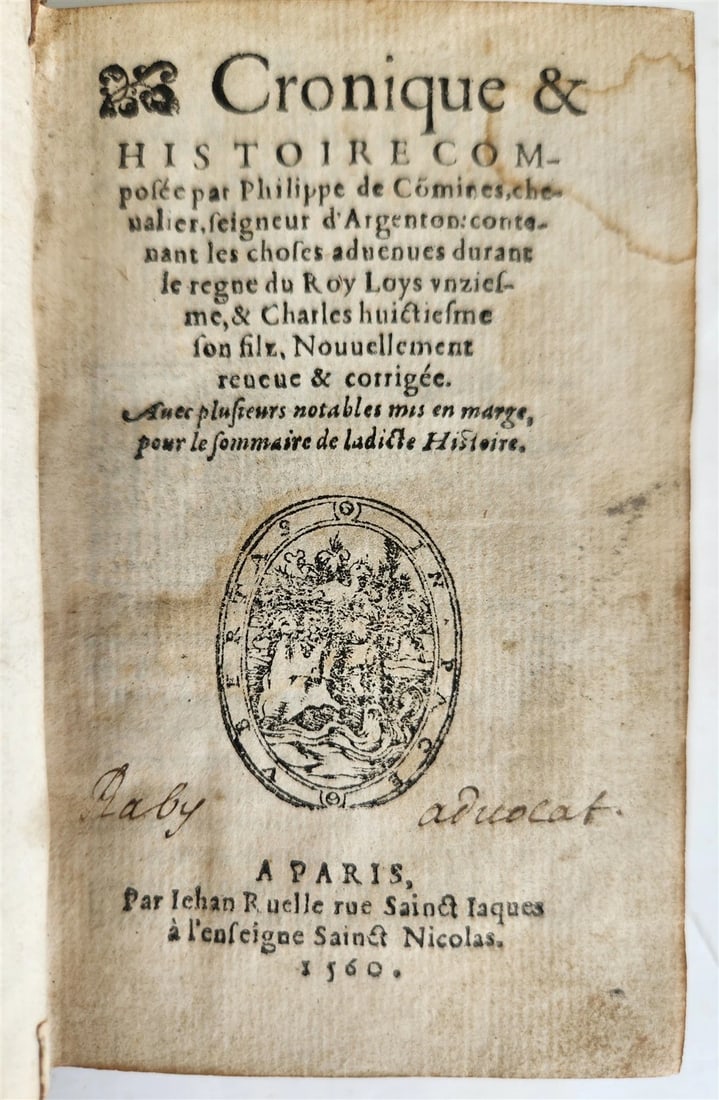 Cronique &
HISTOIRE COM-
posée par Philippe de Cōmines, che-
ualier, seigneur d'Argenton: conte-
nant les choses aduenues durant
le regne du Roy Loys vnzies-
me, & Charles huictiesme
son filz, Nouuellement
reueue & corrigée.
Auec plusieurs notables mis en marge,
pour le sommaire de ladicte Histoire.
VBERTAS IN PACE
Raby aduocat.
A PARIS,
Par Iehan Ruelle rue Sainct Iaques
à l'enseigne Sainct Nicolas.
1560.